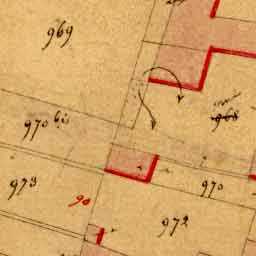 969
968
970 bis
973
970
90
972